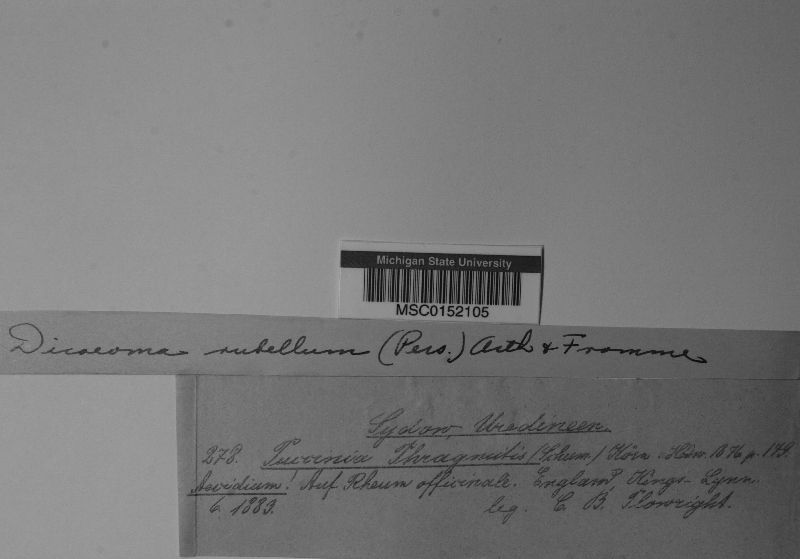 Michigan State University
MSC0152105
Dicaeoma rubellum (Pers.) Arth & Fromme
Sydow, Uredineen.
278. Puccinia Phragmitis (Schum) Körn. Hedw. 1876 p. 179.
Aecidium! Auf Rheum officinale. England, Kings-Lynn.
6. 1883. leg. C. B. Plowright.